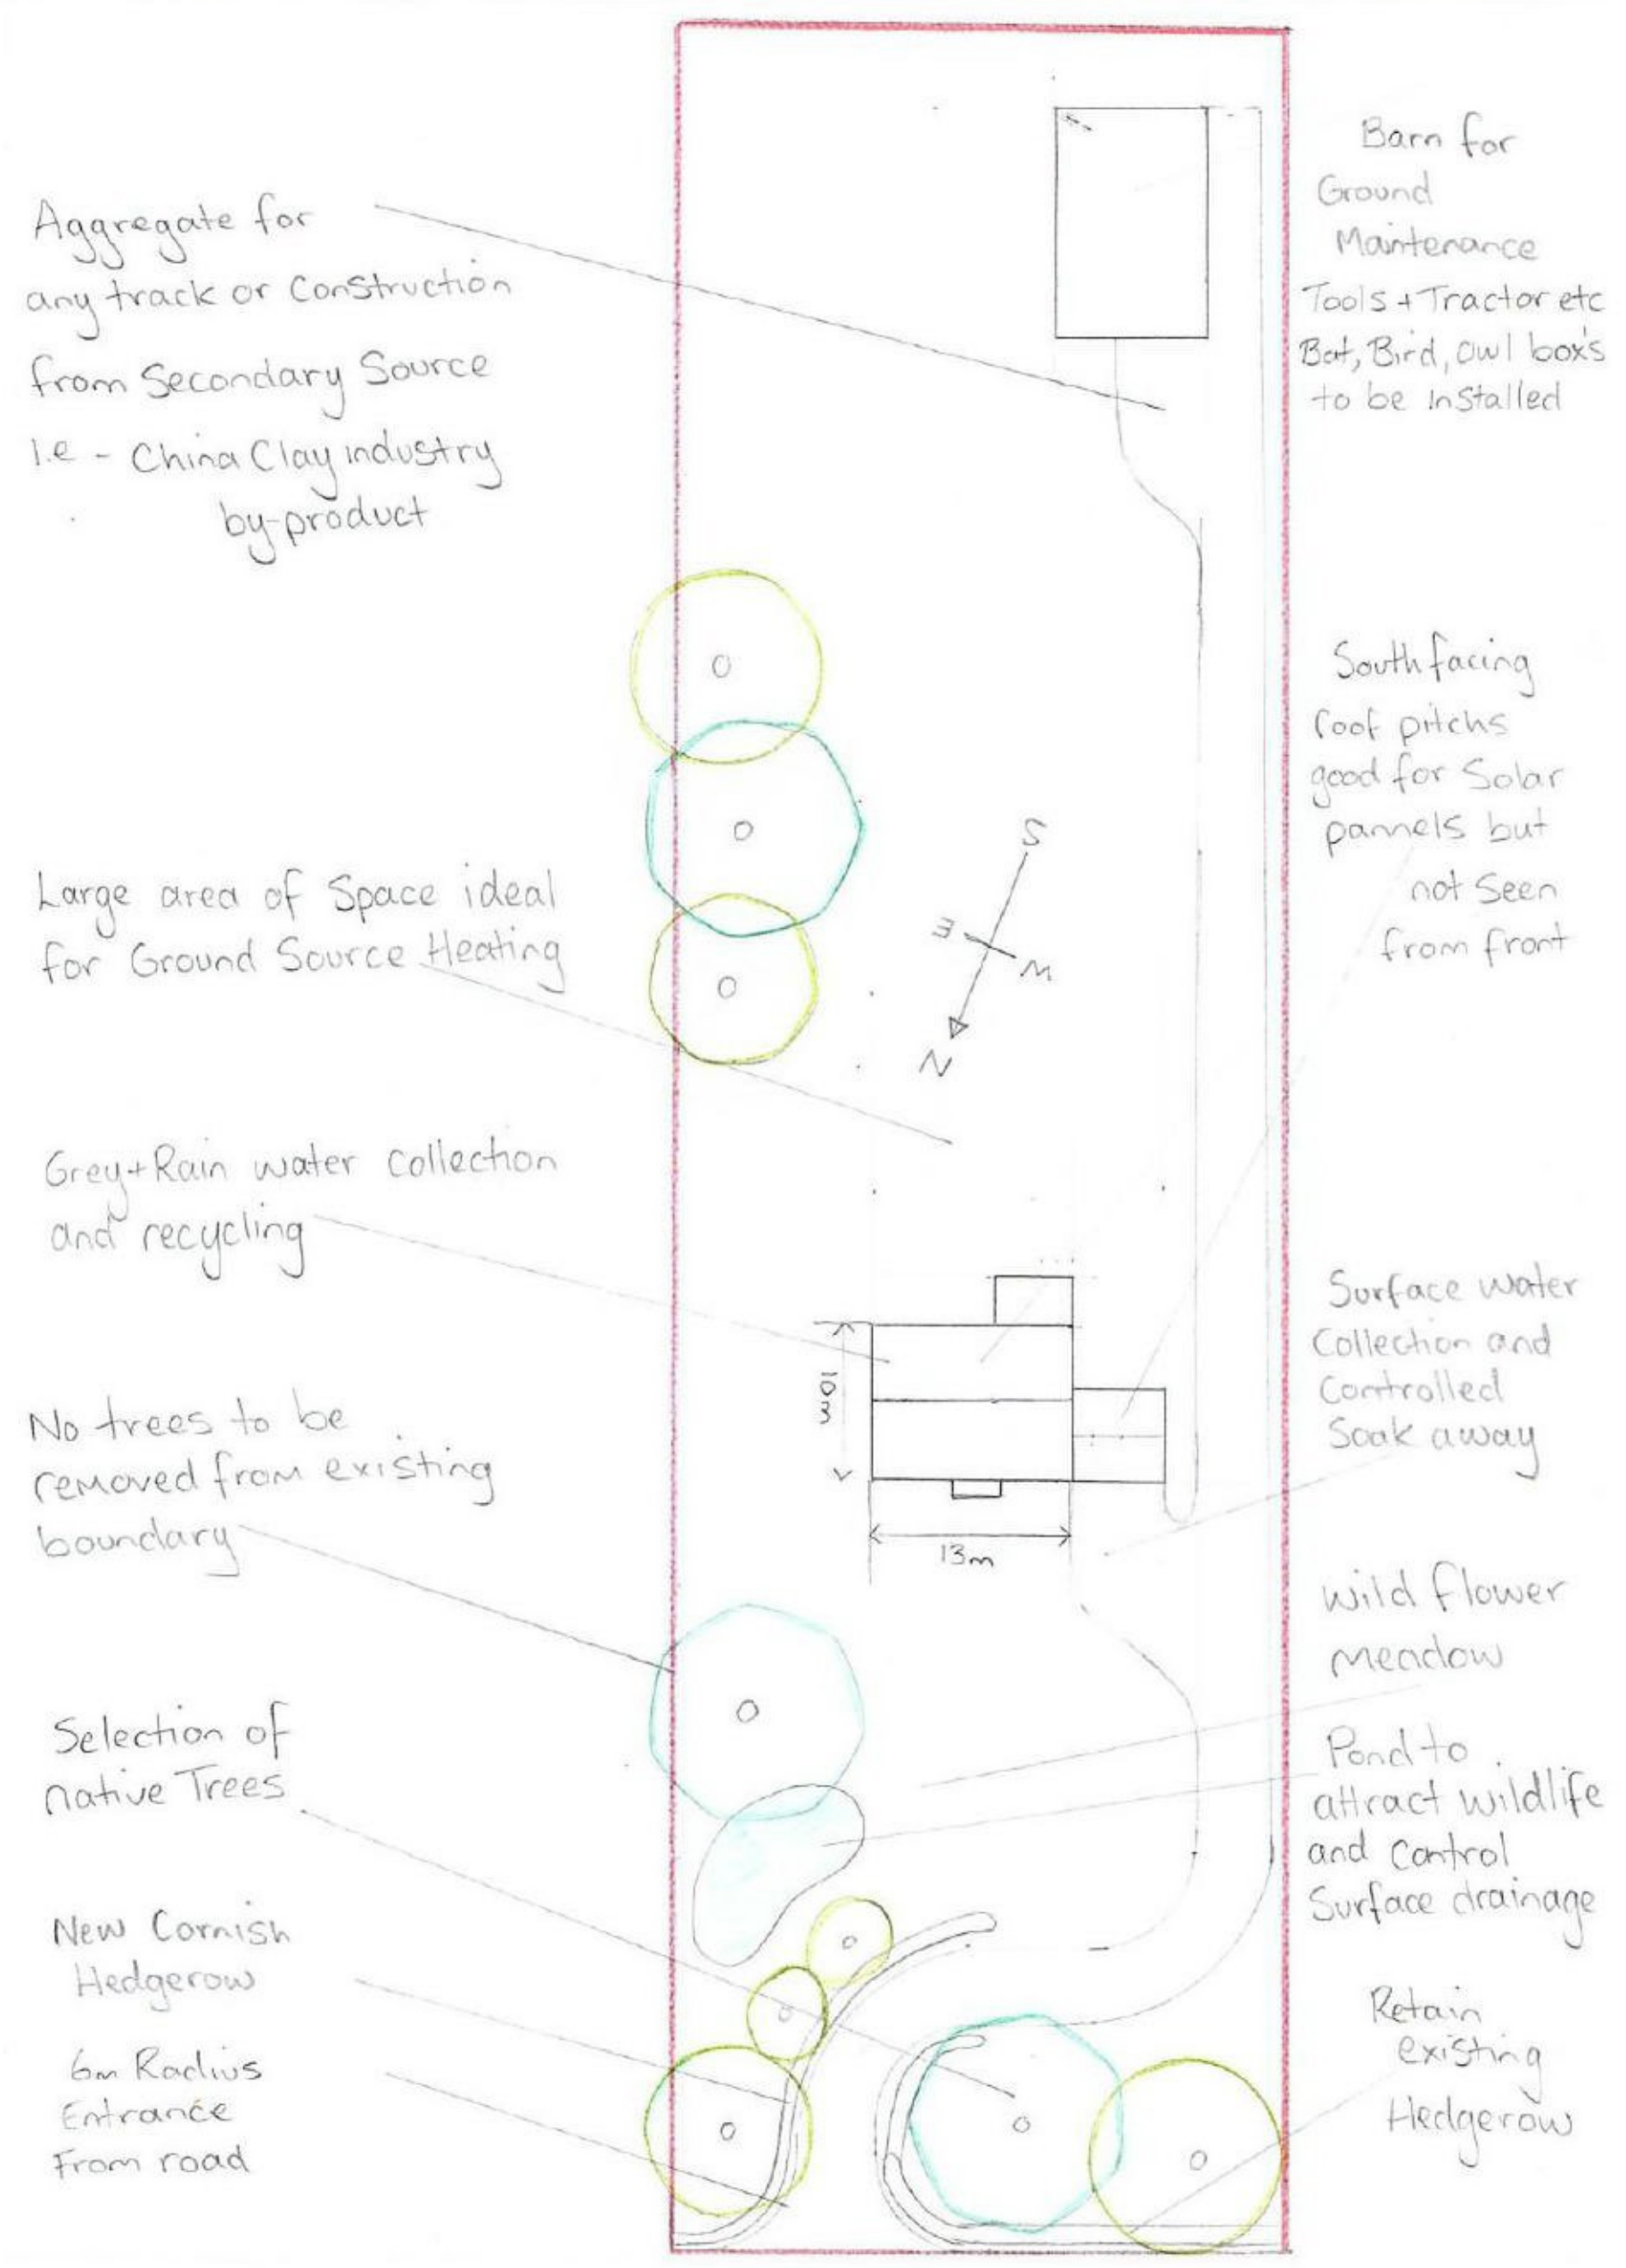 Aggregate for
any track or Construction
from Secondary Source
i.e - China Clay industry
by-product
Large area of Space ideal
for Ground Source Heating
Grey+Rain water collection
and recycling
No trees to be
removed from existing
boundary
Selection of
native Trees
New Cornish
Hedgerow
6m Radius
Entrance
From road
S
E
W
N
10m
13m
Barn for
Ground
Maintenance
Tools + Tractor etc
Bat, Bird, Owl box's
to be installed
South facing
roof pitchs
good for Solar
pannels but
not Seen
from front
Surface water
Collection and
Controlled
Soak away
Wild flower
meadow
Pond to
attract wildlife
and Control
Surface drainage
Retain
existing
Hedgerow